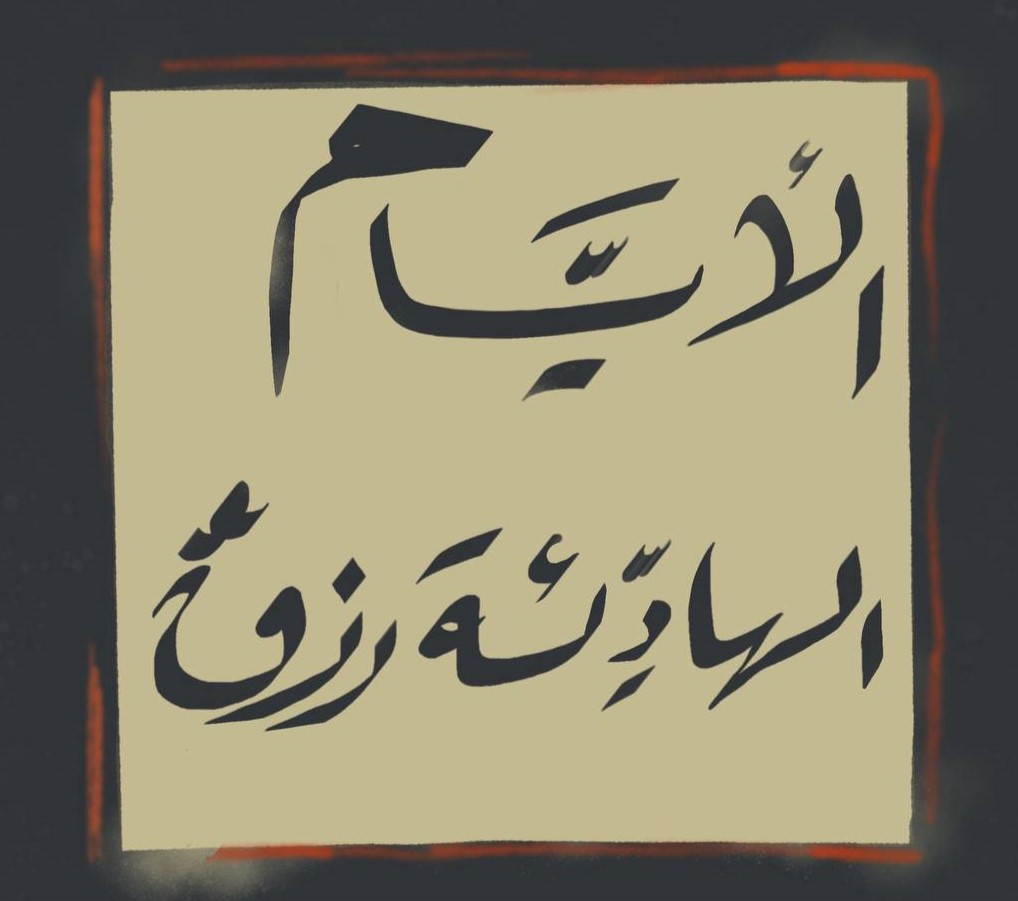 الأيَّام
الهادِّئَة رزقٌ